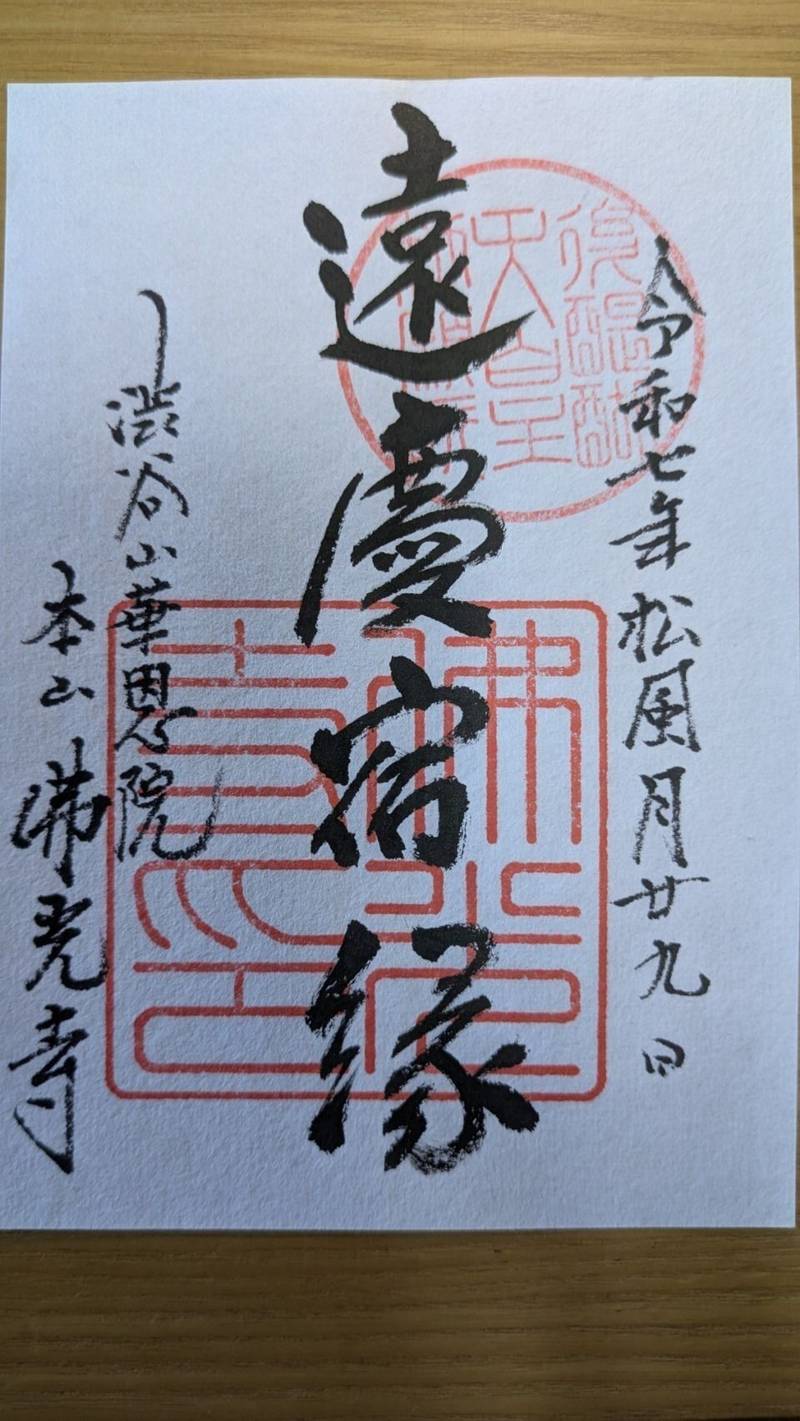 令和七年松風月廿九日
遠慶宿縁
渋谷山華恩院
本山佛光寺
後醍醐
天皇
佛光
寺印